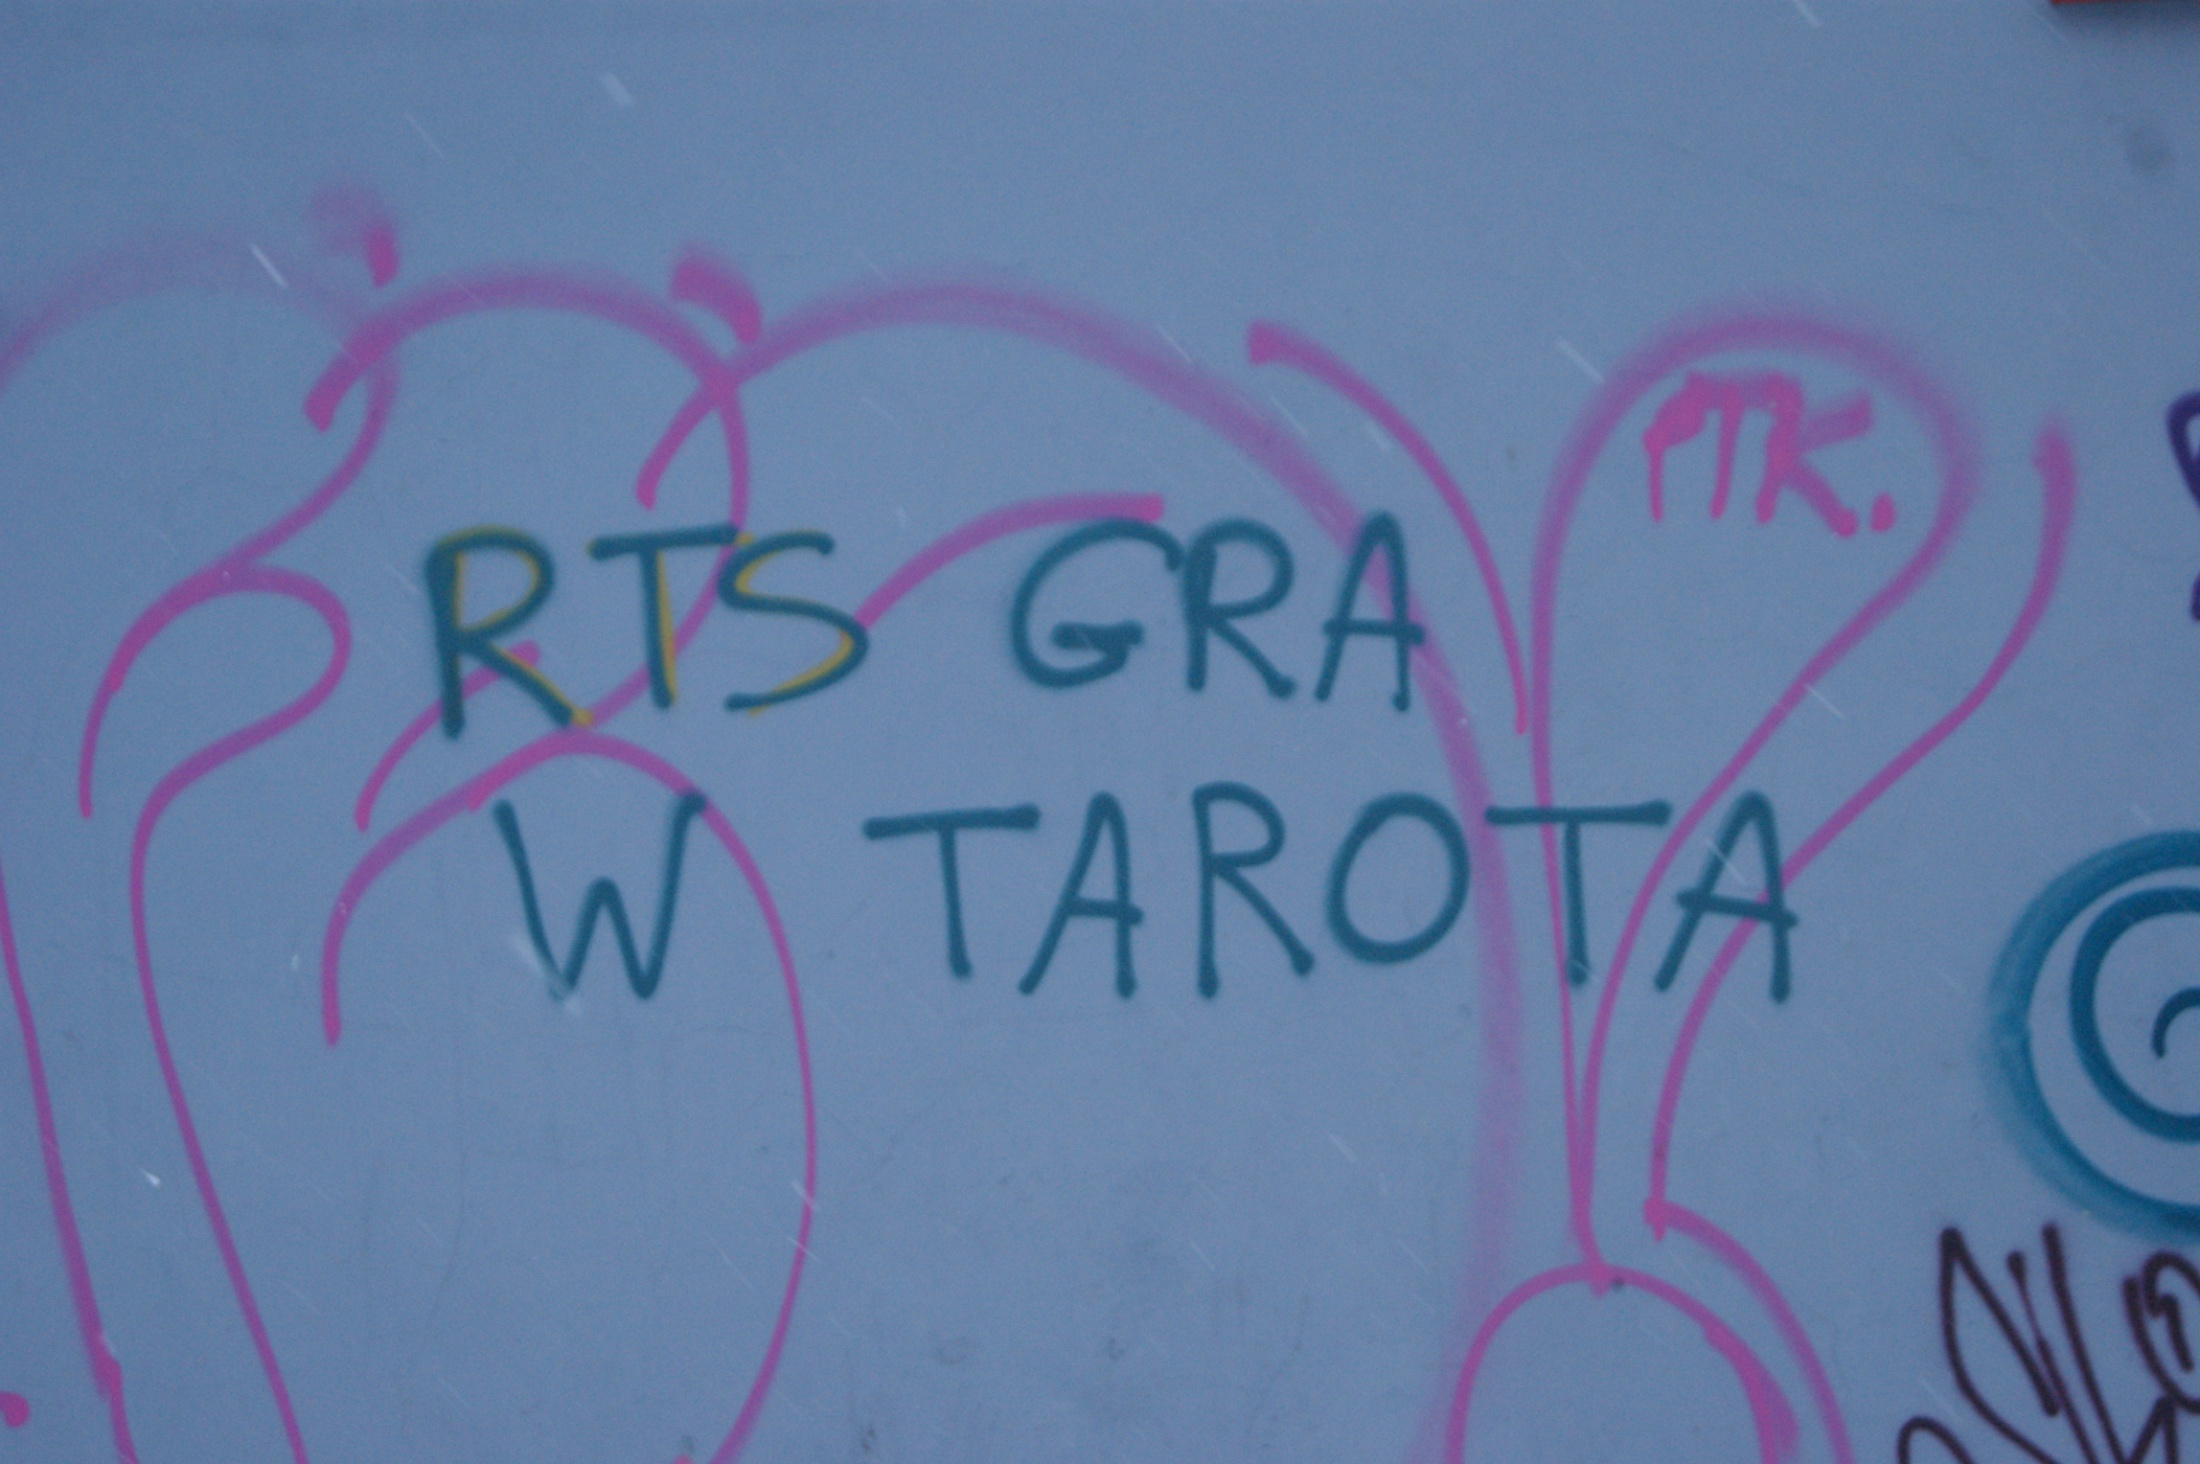 PTK.
RTS GRA
W TAROTA